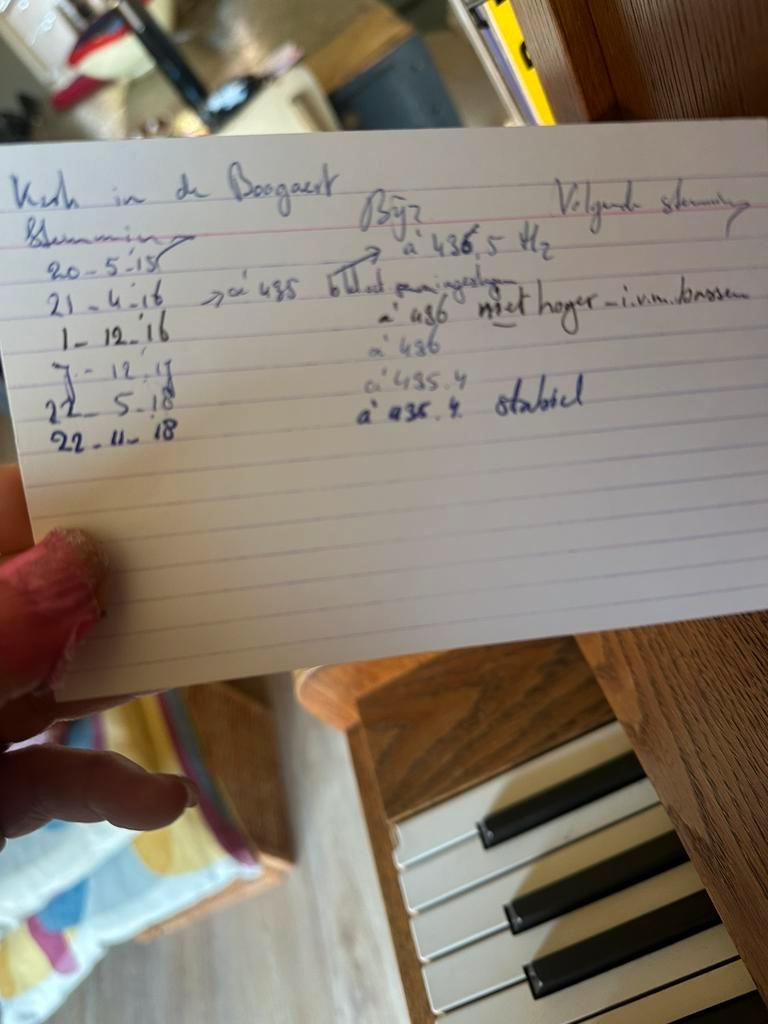 Kerk in de Boogaert
Stemming Bijz Volgende stemming
20-5-'15 a' 436,5 Hz
21-4-'16 → a' 435
1-12-'16 a' 436 niet hoger - i.v.m. bassen
7-12-'17 a' 436
22-5-'18 a' 435.4
22-11-'18 a' 435.4 stabiel